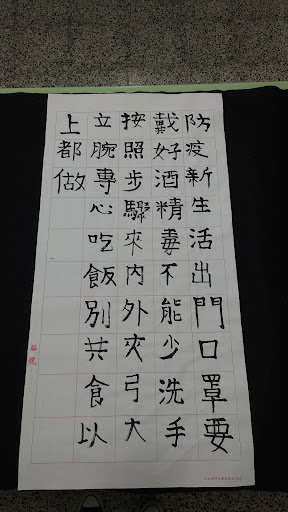 防疫新生活出門口罩要
戴好酒精毒不能少洗手
按照步驟來內外夾弓大
立腕專心吃飯別共食以
上都做